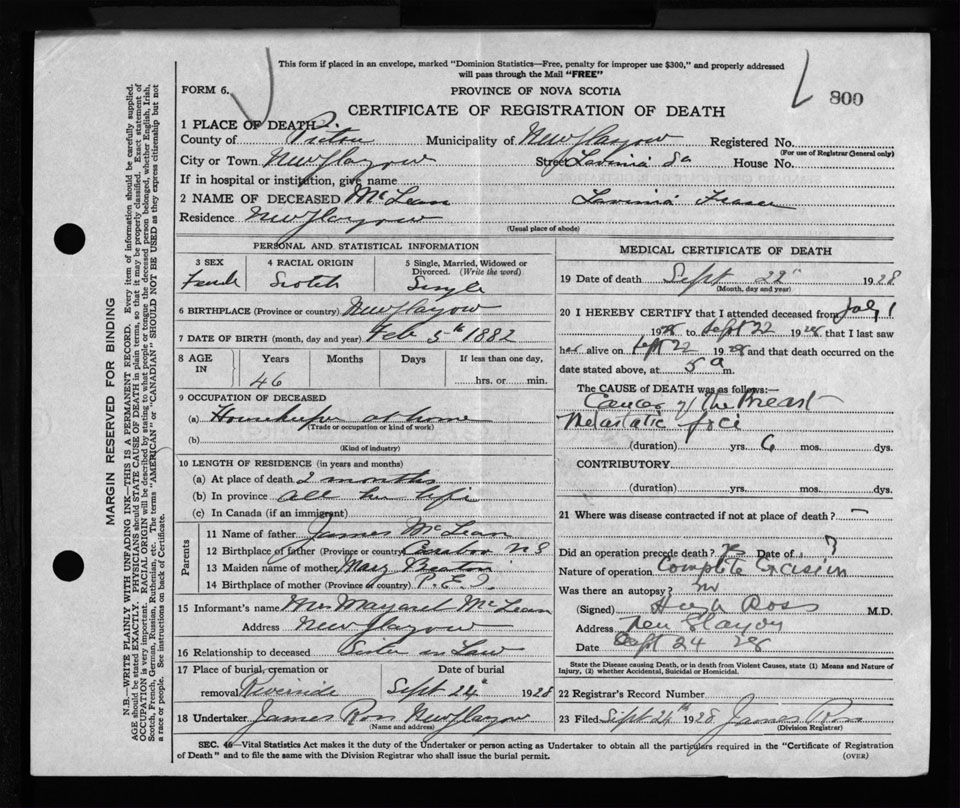 This form if placed in an envelope, marked "Dominion Statistics—Free, penalty for improper use $300," and properly addressed
will pass through the Mail "FREE"
FORM 6.
PROVINCE OF NOVA SCOTIA
800
CERTIFICATE OF REGISTRATION OF DEATH
1 PLACE OF DEATH
County of Pictou Municipality of New Glasgow Registered No.
(For use of Registrar General only)
City or Town New Glasgow Street Lavinia St House No.
If in hospital or institution, give name
2 NAME OF DECEASED McLean Lavinia Fraser
Residence New Glasgow
(Usual place of abode)
MARGIN RESERVED FOR BINDING
N.B.—WRITE PLAINLY WITH UNFADING INK—THIS IS A PERMANENT RECORD. Every item of information should be carefully supplied.
AGE should be stated EXACTLY. PHYSICIANS should STATE CAUSE OF DEATH in plain terms, so that it may be properly classified. Exact statement of
OCCUPATION is very important. RACIAL ORIGIN will be described by stating to what people or tongue the deceased person belonged, whether English, Irish,
Scotch, French, German, Russian, Ruthenian, etc. The terms "AMERICAN" or "CANADIAN" SHOULD NOT BE USED as they express citizenship but not
a race or people. See instructions on back of Certificate.
PERSONAL AND STATISTICAL INFORMATION
3 SEX
Female
4 RACIAL ORIGIN
Scotch
5 Single, Married, Widowed or
Divorced. (Write the word)
Single
6 BIRTHPLACE (Province or country) New Glasgow
7 DATE OF BIRTH (month, day and year) Feb 5th 1882
8 AGE
IN
Years Months Days If less than one day,
46 hrs. or min.
9 OCCUPATION OF DECEASED
(a) Housekeeper at home
(Trade or occupation or kind of work)
(b)
(Kind of industry)
10 LENGTH OF RESIDENCE (in years and months)
(a) At place of death 2 months
(b) In province all her life
(c) In Canada (if an immigrant)
Parents
11 Name of father James McLean
12 Birthplace of father (Province or country) Caraboo N S
13 Maiden name of mother Mary Beaton
14 Birthplace of mother (Province or country) P.E.I.
15 Informant's name Mrs Margaret McLean
Address New Glasgow
16 Relationship to deceased Sister in Law
17 Place of burial, cremation or Date of burial
removal Riverside Sept 24th 1928
18 Undertaker James Ross New Glasgow
(Name and address)
MEDICAL CERTIFICATE OF DEATH
19 Date of death Sept 22nd 1928
(Month, day and year)
20 I HEREBY CERTIFY that I attended deceased from July 1
1928 to Sept 22 1928 that I last saw
her alive on Sept 22 1928 and that death occurred on the
date stated above, at 5 a m.
The CAUSE OF DEATH was as follows:—
Cancer of the Breast
Metastatic foci
(duration) yrs. 6 mos. dys.
CONTRIBUTORY
(duration) yrs. mos. dys.
21 Where was disease contracted if not at place of death? —
Did an operation precede death? Yes Date of ?
Nature of operation Complete Excision
Was there an autopsy? no
(Signed) Hugh Ross M.D.
Address New Glasgow
Date Sept 24 28
State the Disease causing Death, or in death from Violent Causes, state (1) Means and Nature of
Injury, (2) whether Accidental, Suicidal or Homicidal.
22 Registrar's Record Number
23 Filed Sept 24th 1928 James Ross
(Division Registrar)
SEC. 46—Vital Statistics Act makes it the duty of the Undertaker or person acting as Undertaker to obtain all the particulars required in the "Certificate of Registration
of Death" and to file the same with the Division Registrar who shall issue the burial permit. (OVER)